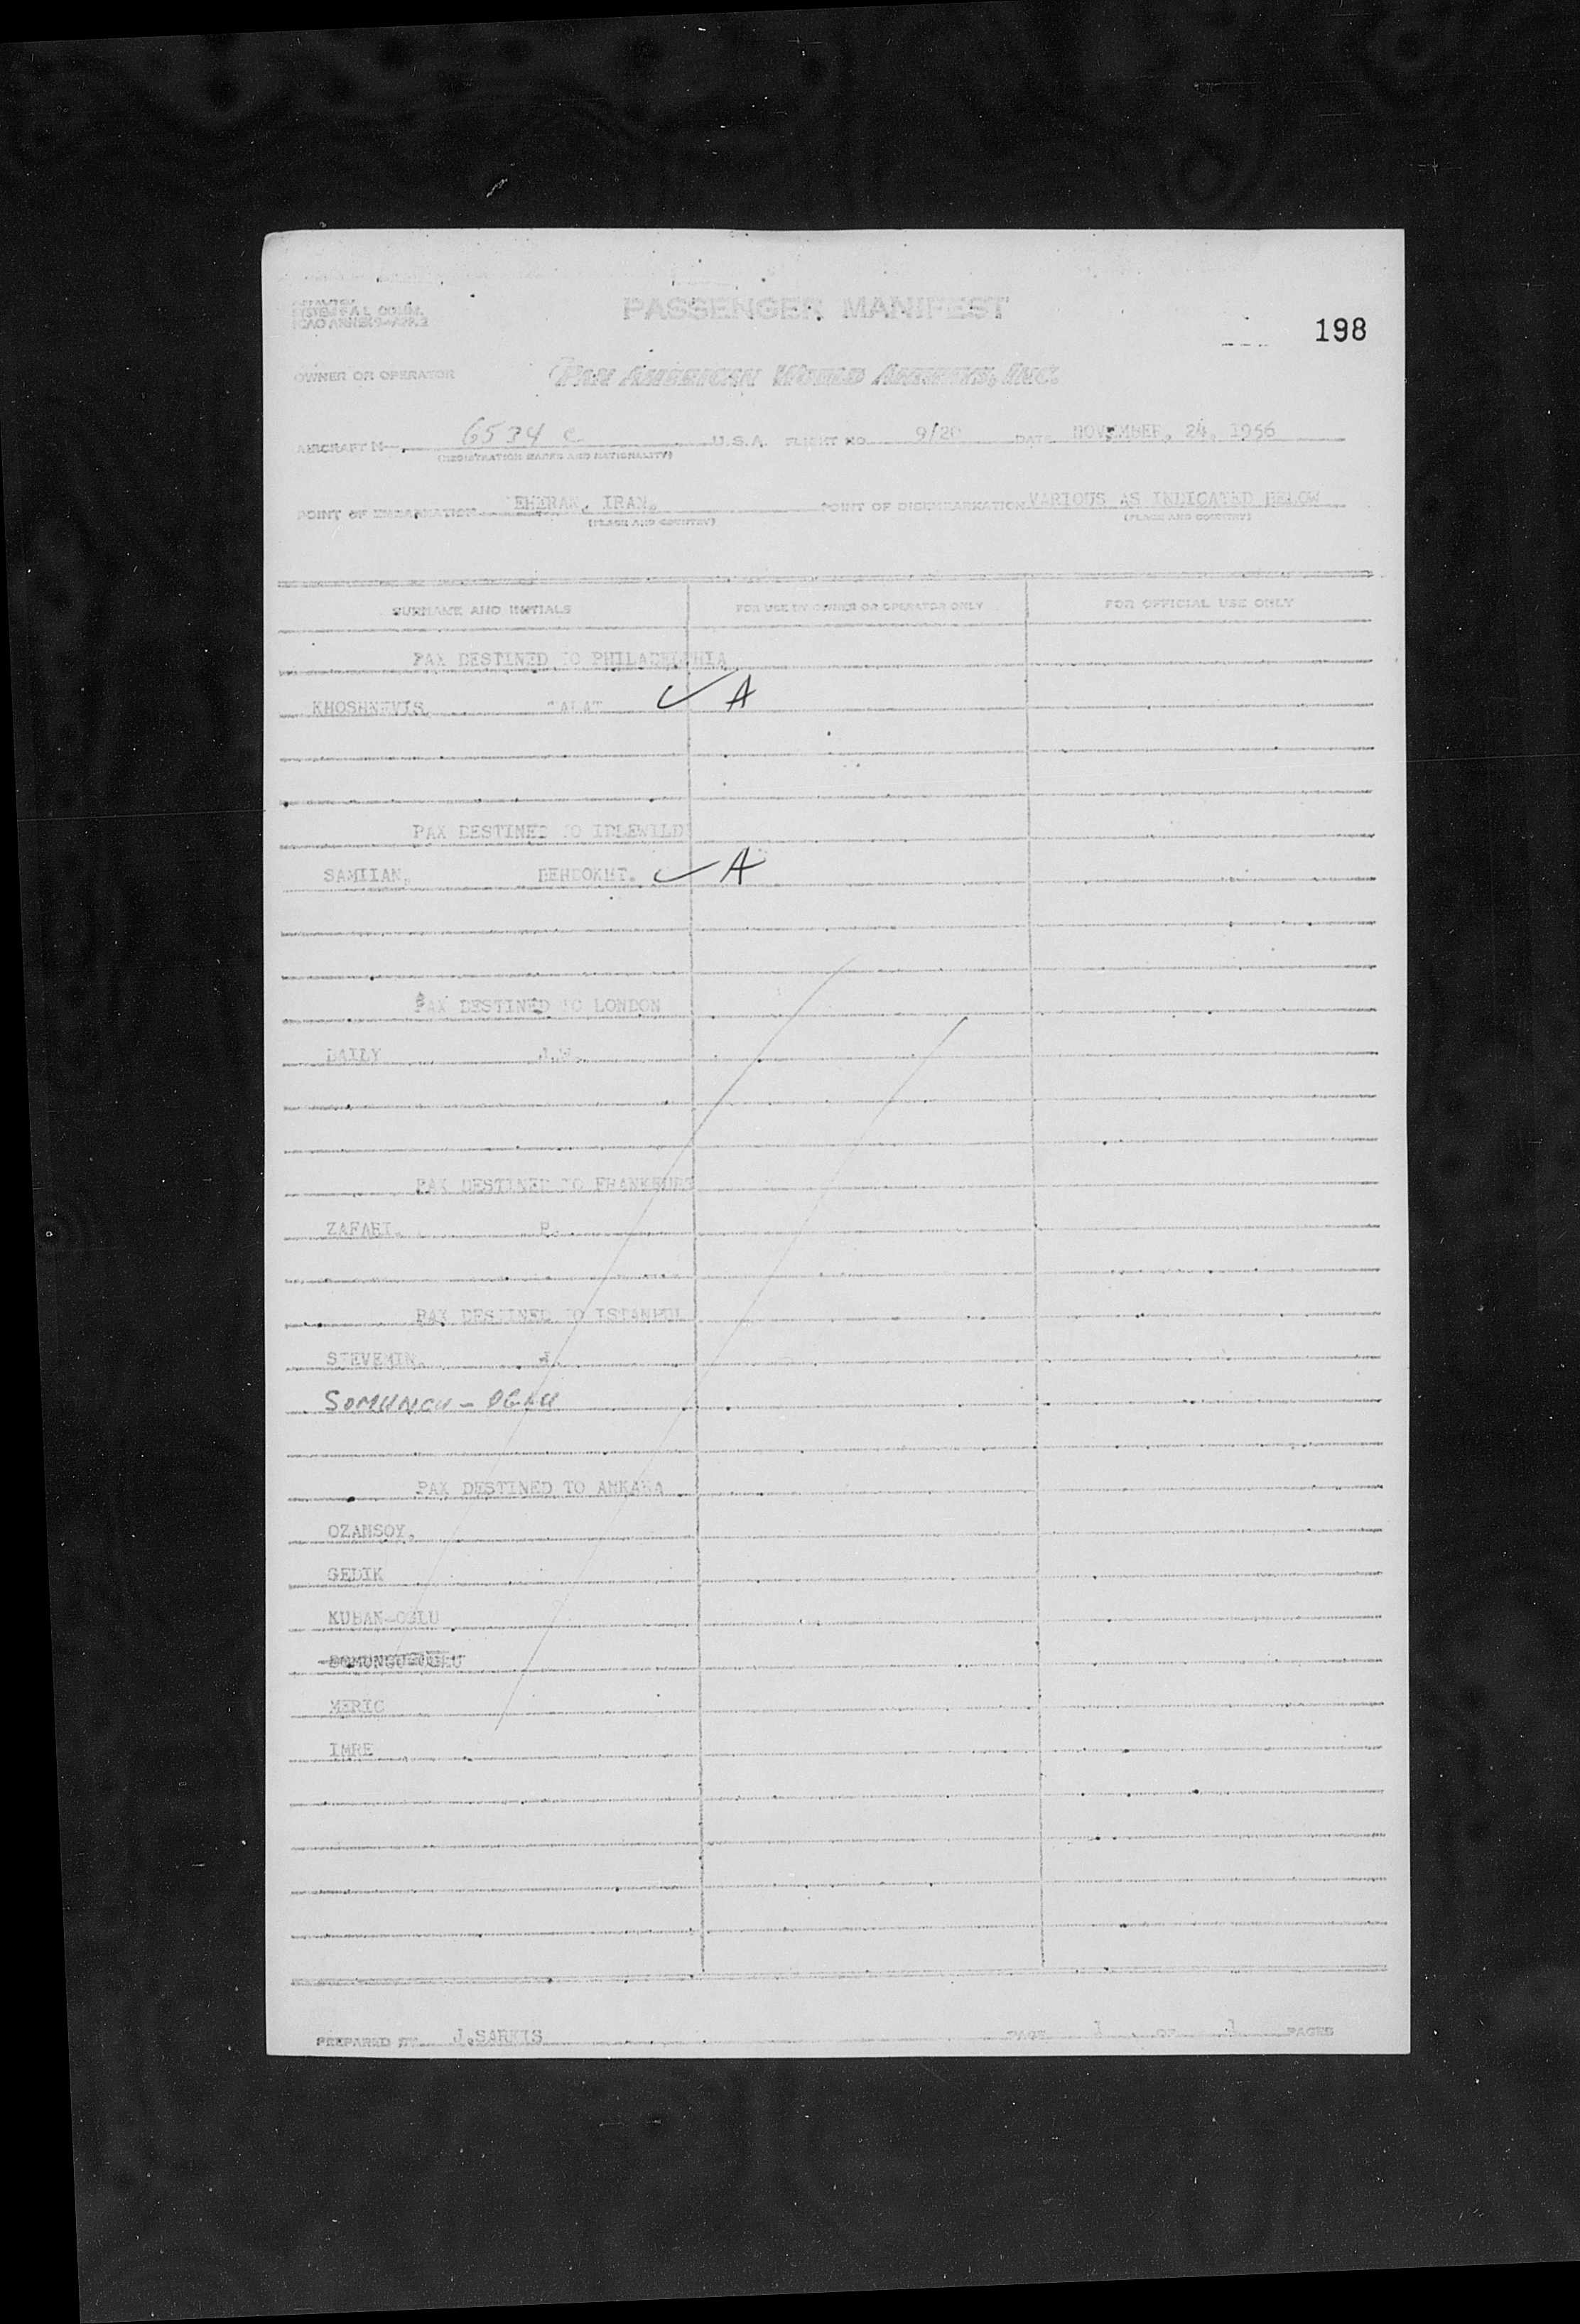 SYSTEM F.A.L. COMM.
ICAO ANNEX 9-APP.3
PASSENGER MANIFEST
198
OWNER OR OPERATOR PAN AMERICAN WORLD AIRWAYS, INC.
AIRCRAFT N- 6534 C U.S.A. FLIGHT NO. DATE NOVEMBER, 24, 1956
(REGISTRATION MARKS AND NATIONALITY)
POINT OF EMBARKATION EHERAN, IRAN. POINT OF DISEMBARKATION VARIOUS AS INDICATED BELOW
(PLACE AND COUNTRY) (PLACE AND COUNTRY)
SURNAME AND INITIALS FOR USE BY OWNER OR OPERATOR ONLY FOR OFFICIAL USE ONLY
PAX DESTINED TO PHILADELPHIA
KHOSHNEVIS, ✓ A
PAX DESTINED TO IDLEWILD
SAMIIAN, BEHDOKHT. ✓ A
PAX DESTINED TO LONDON
DAILY J.W.
PAX DESTINED TO FRANKFURT
ZAFARI. P.
PAX DESTINED TO ISTANBUL
STEVENIN.
SOMUNCU - OGLU
PAX DESTINED TO ANKARA
OZANSOY,
GEDIK
KUBAN-OGLU
SOMUNCU-OGLU
MERIC
IMRE
PREPARED BY J.SARKIS PAGE 1 OF 1 PAGES